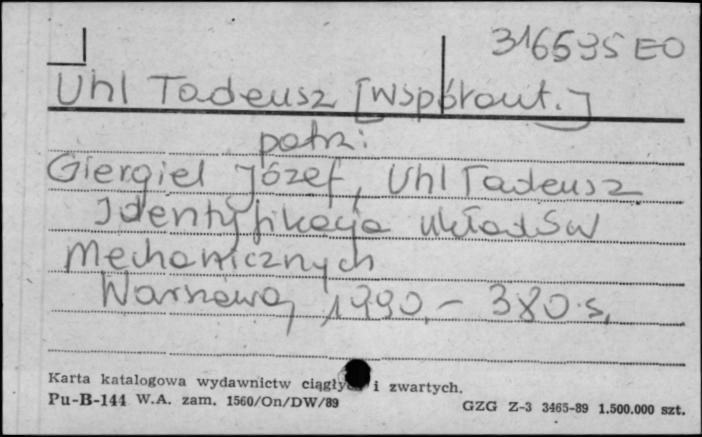 316595 EO
Uhl Tadeusz [współaut.]
patrz:
Giergiel Józef, Uhl Tadeusz
Identyfikacja układów
mechanicznych
Warszawa, 1990.- 380 s.
Karta katalogowa wydawnictw ciągłych i zwartych.
Pu-B-144 W.A. zam. 1560/On/DW/89
GZG Z-3 3465-89 1.500.000 szt.